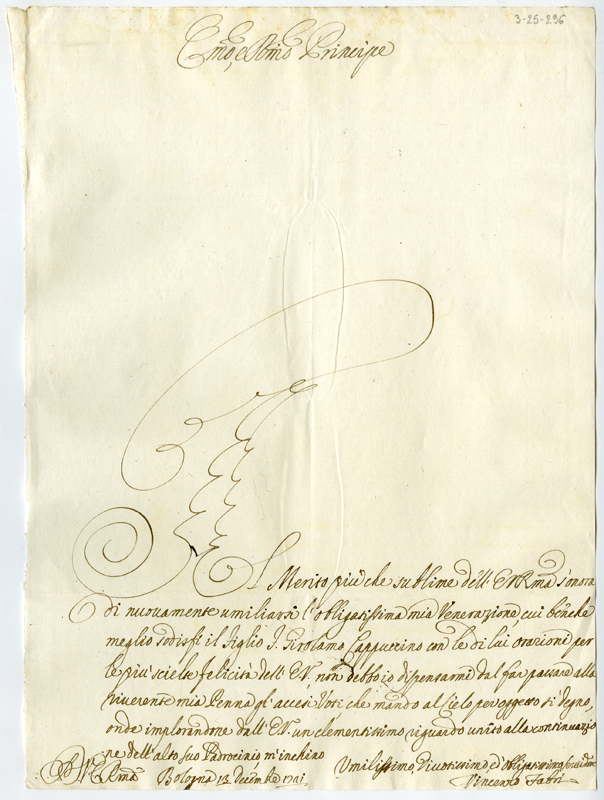 3-25-296
Em̃o, e Rm̃o Principe
Il Merito più che sublime dell' E.V.Rm̃a s'onora
di nuovamente umiliarsi l'obligatissima mia Venerazione, cui benche
meglio sodisfi il Figlio F. Girolamo Cappuccino con le di lui orazioni per
le più scielte felicità dell' E.V., non debbo io dispensarmi dal far passare alla
riverente mia Penna gl' accesi Voti che mando al Cielo per oggetto si degno,
onde implorandone dall' E.V. un clementissimo riguardo unito alla continuazio
ne dell' alto suo Padrocinio m'inchino
Di V. E. Rm̃a Bologna 13 Decembre Umilissimo, Divotissimo ed Obligatissimo
Vincenzo Fabri